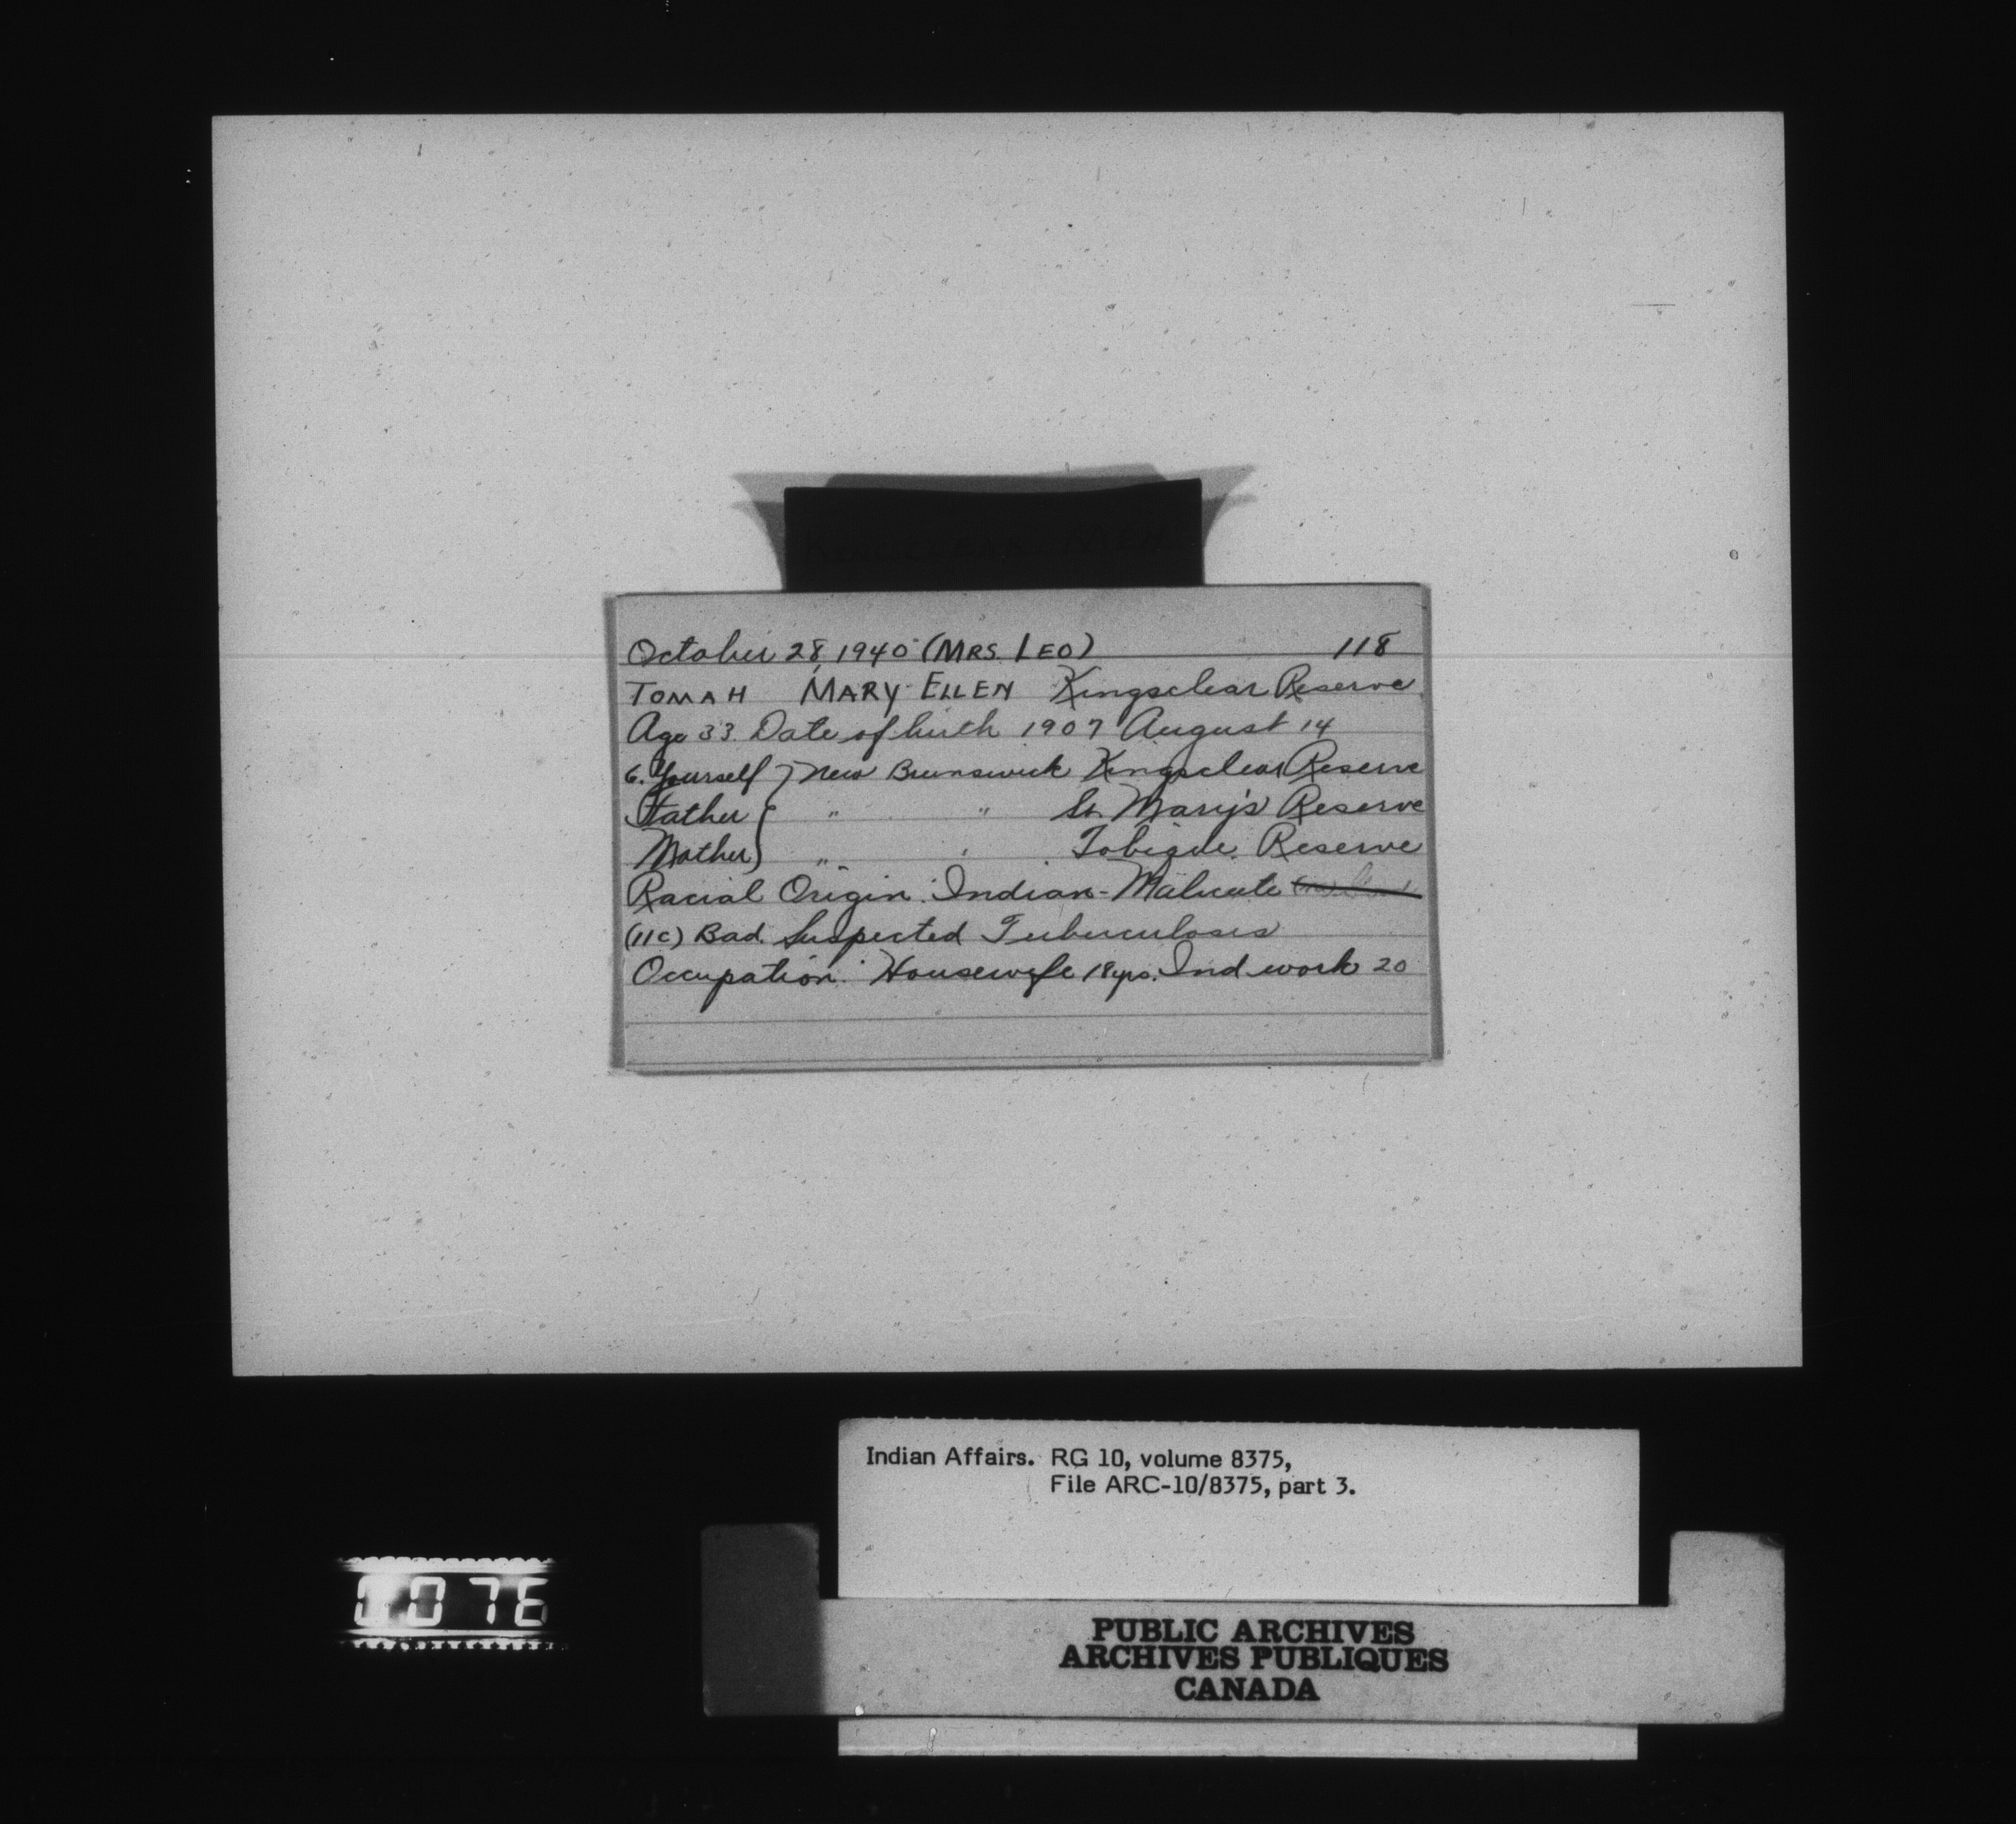 October 28, 1940 (MRS. LEO) 118
TOMAH MARY ELLEN Kingsclear Reserve
Age 33. Date of birth 1907 August 14
6. Yourself } New Brunswick Kingsclear Reserve
Father { " " St. Mary's Reserve
Mother } " " Tobique Reserve
Racial Origin: Indian - Malicete
(11c) Bad. Suspected Tuberculosis
Occupation: Housewife 18 yrs. Ind. work 20
Indian Affairs. RG 10, volume 8375,
File ARC-10/8375, part 3.
0076
PUBLIC ARCHIVES
ARCHIVES PUBLIQUES
CANADA